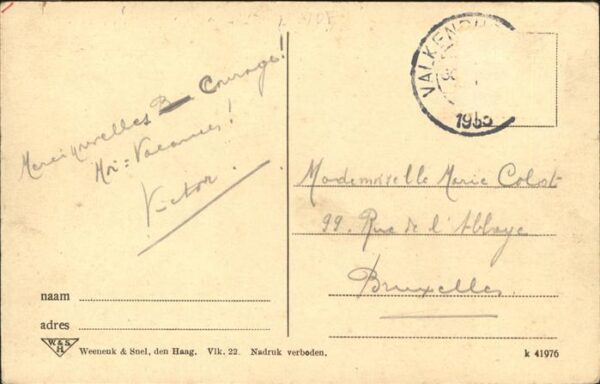 Courage!
Moi = Vacances!
Victor.
VALKENBU
30
Mademoiselle Marie Colot
99. Rue de l'Abbaye
Bruxelles
naam
adres
W&S
H
Weenenk & Snel, den Haag. Vlk. 22. Nadruk verboden.
k 41976